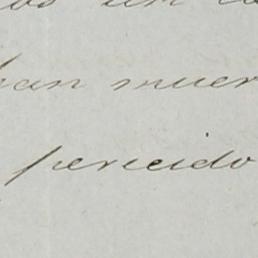 han muer
perecido